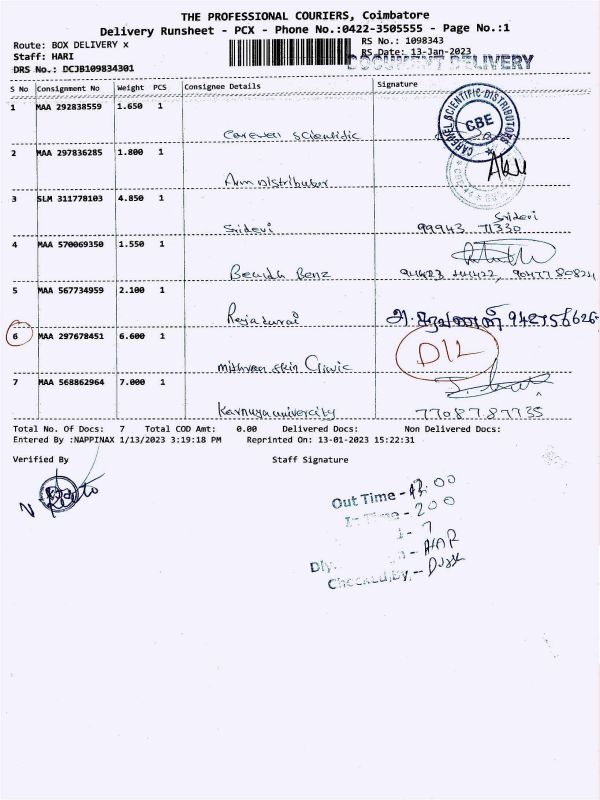 THE PROFESSIONAL COURIERS, Coimbatore
Delivery Runsheet - PCX - Phone No.:0422-3505555 - Page No.:1
Route: BOX DELIVERY x
RS No.: 1098343
Staff: HARI
RS Date: 13-Jan-2023
DOCUMENT DELIVERY
DRS No.: DCJB109834301
S No Consignment No Weight PCS Consignee Details Signature
1 MAA 292838559 1.650 1
CAREWEL SCIENTIFIC DISTRIBUTORS
CBE
Scientific
2 MAA 297836285 1.800 1
Distributor
3 SLM 311778103 4.850 1
Sridevi
Sridevi 99943 71330
4 MAA 570069350 1.550 1
Benz
5 MAA 567734959 2.100 1
Rajadurai
6 MAA 297678451 6.600 1
D/L
Mithran skin Clinic
7 MAA 568862964 7.000 1
Karunya university 7708787735
Total No. Of Docs: 7 Total COD Amt: 0.00 Delivered Docs: Non Delivered Docs:
Entered By :NAPPINAX 1/13/2023 3:19:18 PM Reprinted On: 13-01-2023 15:22:31
Verified By Staff Signature
Out Time -
In Time - 200
1 - 7
Checked By. -